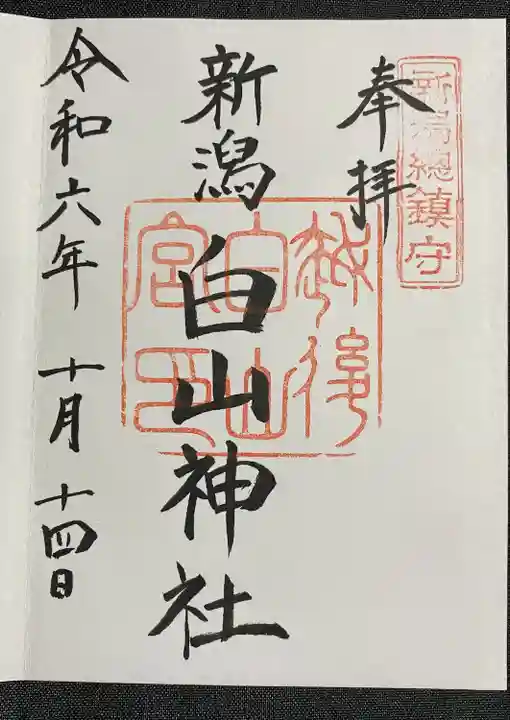 新潟總鎮守
奉拝
越後
白山
宮印
新潟白山神社
令和六年 十月十四日